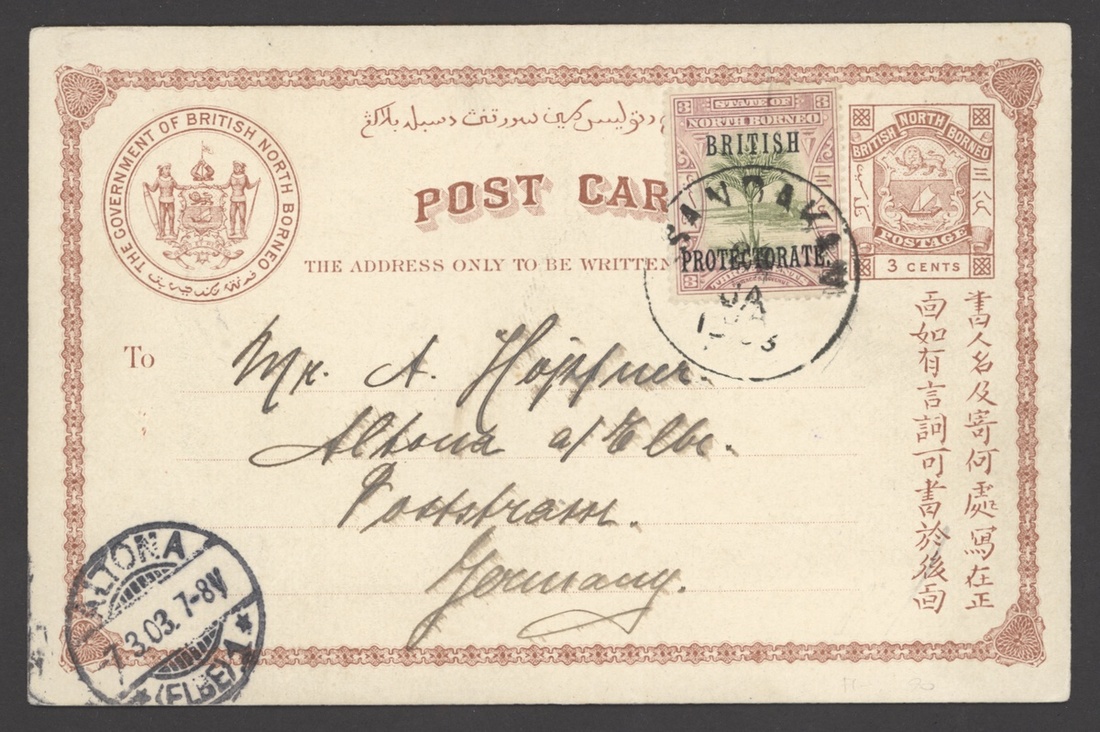 THE GOVERNMENT OF BRITISH NORTH BORNEO
POST CAR
THE ADDRESS ONLY TO BE WRITTEN
3 STATE OF 3
NORTH BORNEO
BRITISH
PROTECTORATE.
3
SANDAKAN
JA
BRITISH NORTH BORNEO
POSTAGE
3 CENTS
三
八
To
Mr. A. Höpfner.
Altona a/Elbe.
Poststrasse.
Germany.
書人名及寄何處寫在正
面如有言詞可書於後面
ALTONA
3.03. 7-8V
* (ELBE) *